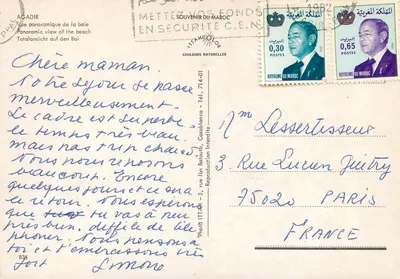 AGADIR
Vue panoramique de la baie
Panoramic view of the beach
Totalansicht auf den Bai
SOUVENIR DU MAROC
COULEURS NATURELLES
METTEZ VOS FONDS
EN SÉCURITÉ C.E.N.
ROYAUME DU MAROC
0,30
ROYAUME DU MAROC
0,65
المملكة المغربية
المملكة المغربية
Chère maman.
Notre séjour se passe
merveilleusement.
Le cadre est superbe.
le temps très beau.
mais pas trop chaud.
Nous nous reposons
beaucoup. Encore
quelques jours et ce sera
le retour. Nous espérons
que tu vas à peu
près bien. difficile de télé
phoner. Nous pensons à
toi et t'embrassons très
fort Simone
Mme Lessertisseur
3 Rue Lucien Guitry
75020 PARIS
FRANCE
Reproduction Interdite